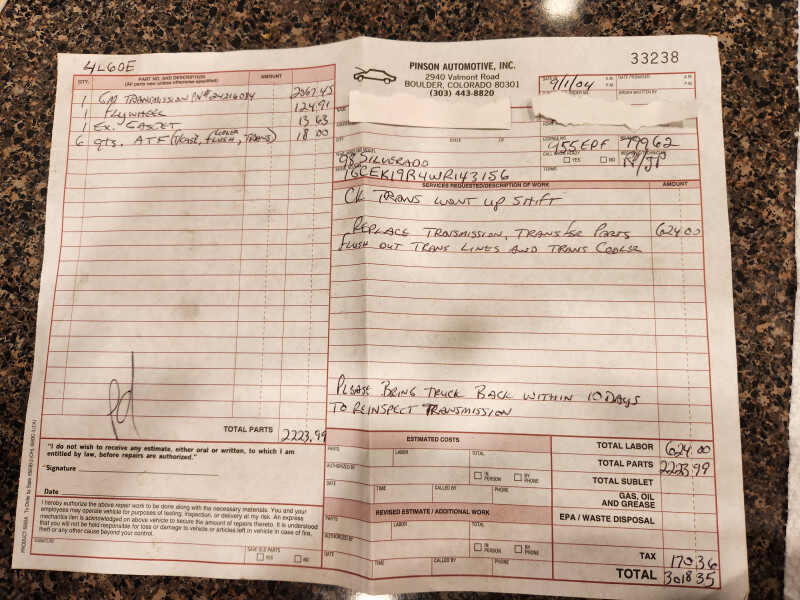 4L60E
QTY.
PART NO. AND DESCRIPTION
(All parts new unless otherwise specified)
AMOUNT
1 GM TRANSMISSION PN# 24216084 2067.45
1 FLYWHEEL 124.91
1 EX. GASKET 13.63
6 qts. ATF (VEH2, COOLER FLUSH, TRANS) 18.00
TOTAL PARTS 2223.99
"I do not wish to receive any estimate, either oral or written, to which I am
entitled by law, before repairs are authorized."
Signature
Date
I hereby authorize the above repair work to be done along with the necessary materials. You and your
employees may operate vehicle for purposes of testing, inspection, or delivery at my risk. An express
mechanics lien is acknowledged on above vehicle to secure the amount of repairs thereto. It is understood
that you will not be held responsible for loss or damage to vehicle or articles left in vehicle in case of fire,
theft or any other cause beyond your control.
SIGNATURE
SAVE OLD PARTS
YES NO
PINSON AUTOMOTIVE, INC.
2940 Valmont Road
BOULDER, COLORADO 80301
(303) 443-8820
33238
9/1/04
DATE PROMISED
A.M.
P.M.
CITY STATE ZIP
LICENSE NO.
455EPF 79962
CALL WHEN READY
YES NO
R/JP
TERMS
98 SILVERADO
1GCEK19R4WR143156
SERVICES REQUESTED/DESCRIPTION OF WORK AMOUNT
CK TRANS WONT UP SHIFT
REPLACE TRANSMISSION, TRANSFER PARTS 624.00
FLUSH OUT TRANS LINES AND TRANS COOLER
PLEASE BRING TRUCK BACK WITHIN 10 DAYS
TO REINSPECT TRANSMISSION
ESTIMATED COSTS
PARTS LABOR TOTAL
AUTHORIZED BY
IN PERSON BY PHONE
DATE TIME CALLED BY PHONE
REVISED ESTIMATE / ADDITIONAL WORK
PARTS LABOR TOTAL
AUTHORIZED BY
IN PERSON BY PHONE
DATE TIME CALLED BY PHONE
TOTAL LABOR 624.00
TOTAL PARTS 2223.99
TOTAL SUBLET
GAS, OIL
AND GREASE
EPA / WASTE DISPOSAL
TAX 170.36
TOTAL 3018.35